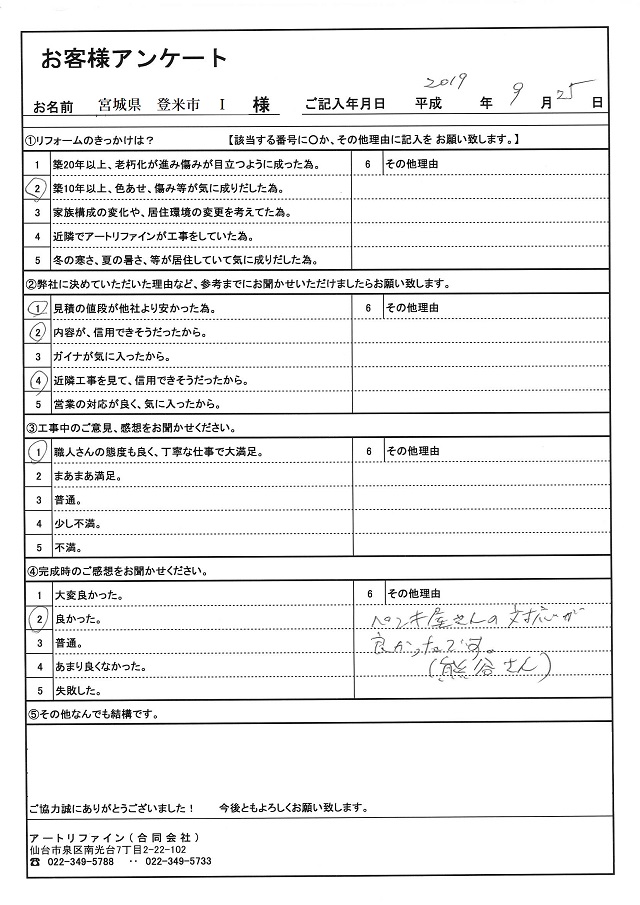 お客様アンケート
お名前 宮城県 登米市 I 様 ご記入年月日 平成 2019 年 9 月 25 日
①リフォームのきっかけは? 【該当する番号に〇か、その他理由に記入を お願い致します。】
1 築20年以上、老朽化が進み傷みが目立つように成った為。 6 その他理由
2 築10年以上、色あせ、傷み等が気に成りだした為。
3 家族構成の変化や、居住環境の変更を考えてた為。
4 近隣でアートリファインが工事をしていた為。
5 冬の寒さ、夏の暑さ、等が居住していて気に成りだした為。
②弊社に決めていただいた理由など、参考までにお聞かせいただけましたらお願い致します。
1 見積の値段が他社より安かった為。 6 その他理由
2 内容が、信用できそうだったから。
3 ガイナが気に入ったから。
4 近隣工事を見て、信用できそうだったから。
5 営業の対応が良く、気に入ったから。
③工事中のご意見、感想をお聞かせください。
1 職人さんの態度も良く、丁寧な仕事で大満足。 6 その他理由
2 まあまあ満足。
3 普通。
4 少し不満。
5 不満。
④完成時のご感想をお聞かせください。
1 大変良かった。 6 その他理由
2 良かった。 ペンキ屋さんの対応が
3 普通。 良かったです。
4 あまり良くなかった。 (熊谷さん)
5 失敗した。
⑤その他なんでも結構です。
ご協力誠にありがとうございました! 今後ともよろしくお願い致します。
アートリファイン(合同会社)
仙台市泉区南光台7丁目2-22-102
☎ 022-349-5788 ・・ 022-349-5733